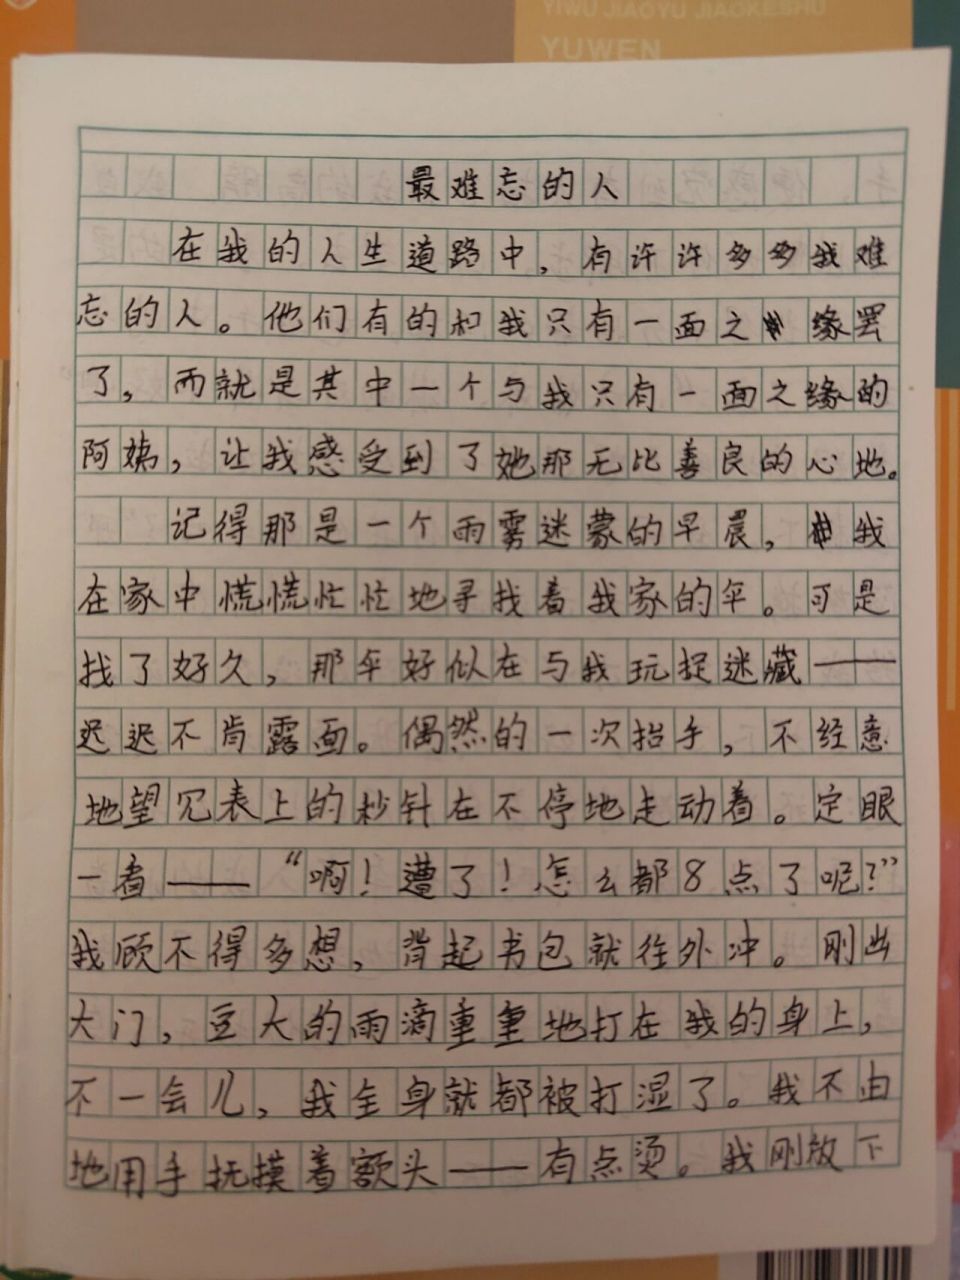 YIWU JIAOYU JIAOKESHU
YUWEN
最难忘的人
在我的人生道路中，有许许多多我难
忘的人。他们有的和我只有一面之缘罢
了，而就是其中一个与我只有一面之缘的
阿姨，让我感受到了她那无比善良的心地。
记得那是一个雨雾迷蒙的早晨，我
在家中慌慌忙忙地寻找着我家的伞。可是
找了好久，那伞好似在与我玩捉迷藏——
迟迟不肯露面。偶然的一次抬手，不经意
地望见表上的秒针在不停地走动着。定眼
一看——“啊！遭了！怎么都8点了呢？”
我顾不得多想，背起书包就往外冲。刚出
大门，豆大的雨滴重重地打在我的身上，
不一会儿，我全身就都被打湿了。我不由
地用手抚摸着额头——有点烫。我刚放下